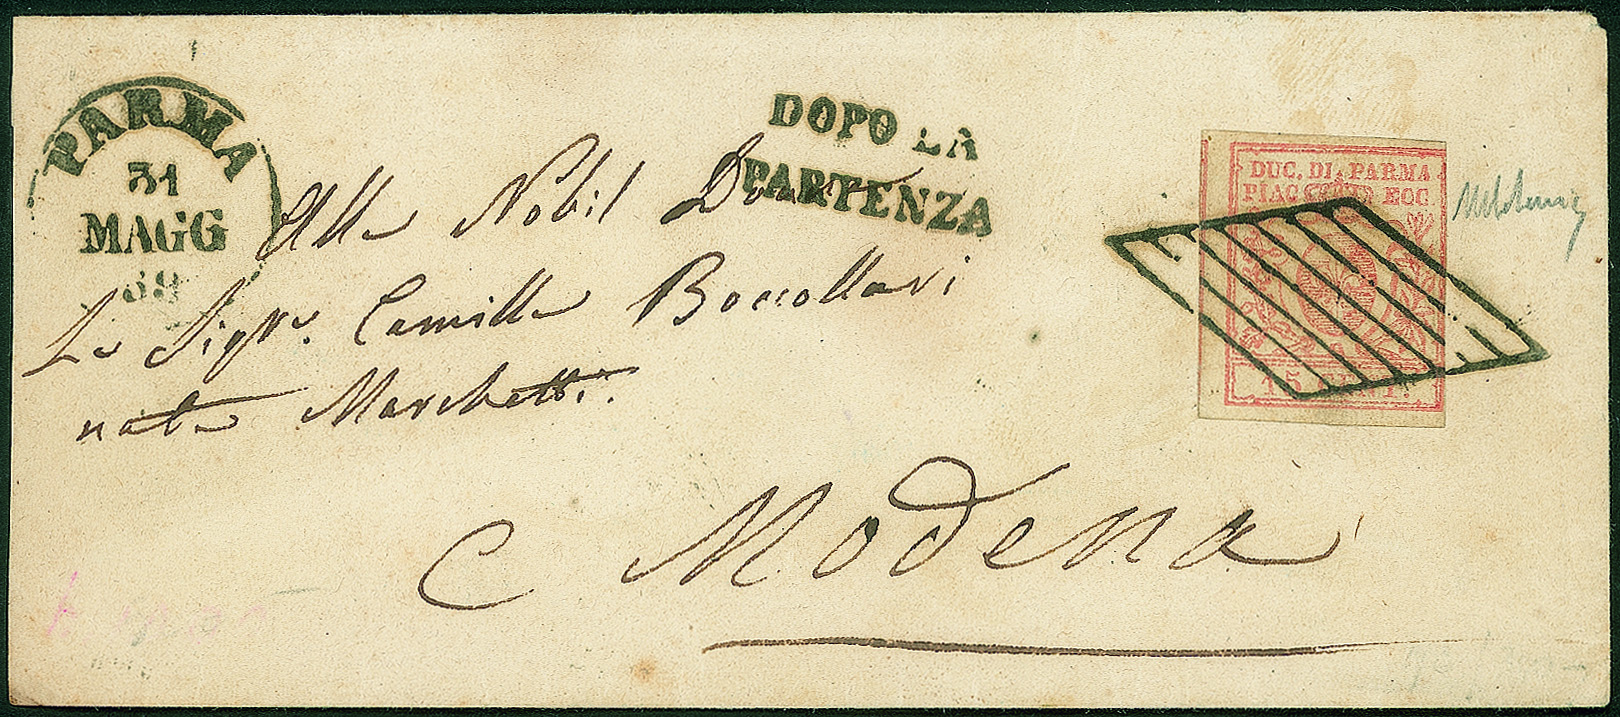 PARMA
31
MAGG
59
DOPO LA
PARTENZA
DUC. DI. PARMA
PIAC ECC.
15 CENT.
Alla Nobil Donna
La Sigra. Camilla Boccollari
nata Marchetti.
Modena